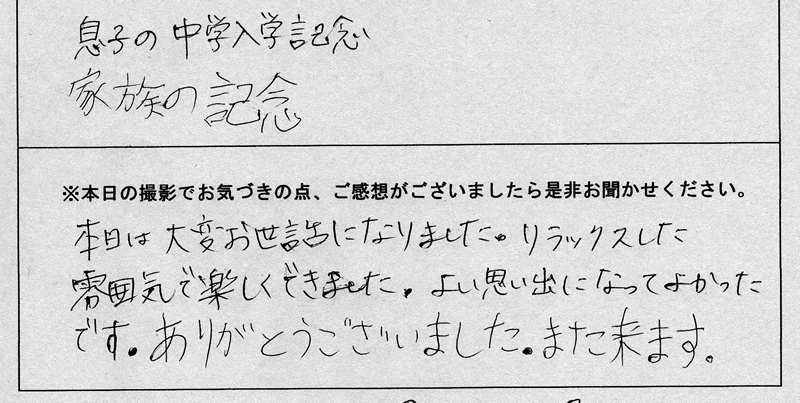 息子の中学入学記念
家族の記念
※本日の撮影でお気づきの点、ご感想がございましたら是非お聞かせください。
本日は大変お世話になりました。リラックスした
雰囲気で楽しくできました。よい思い出になってよかった
です。ありがとうございました。また来ます。